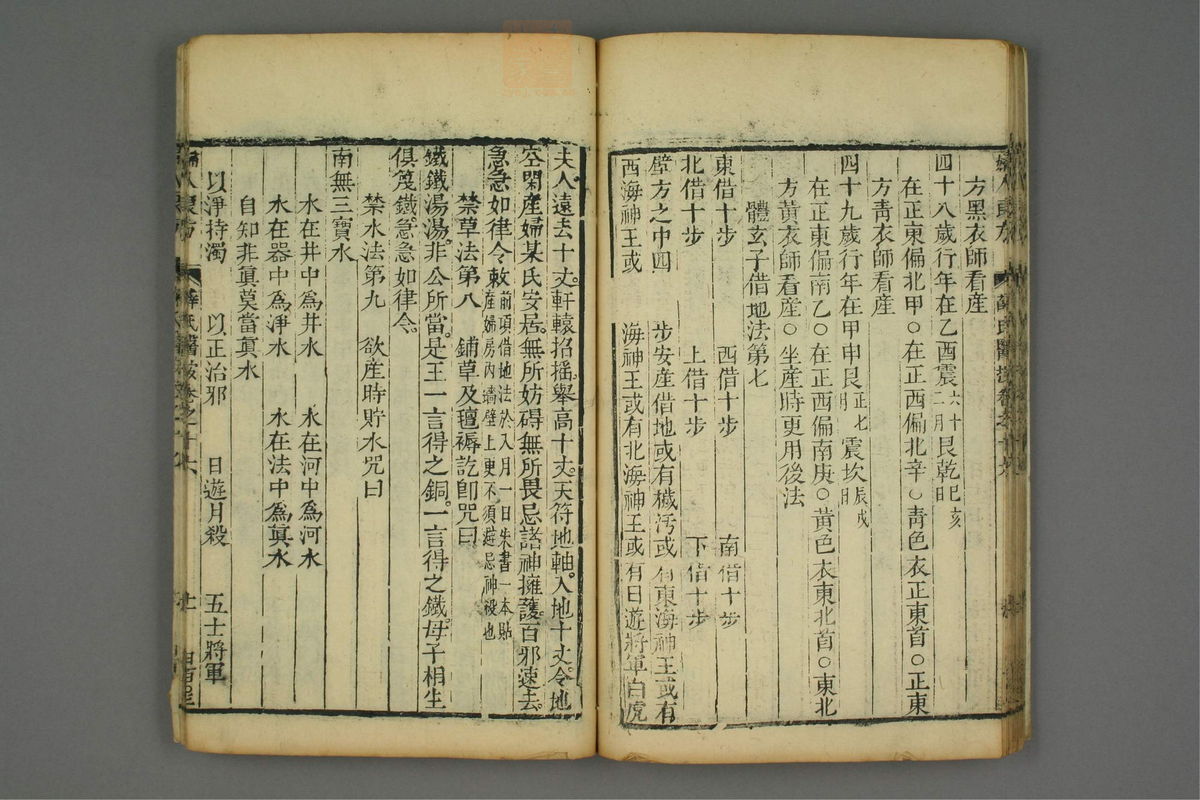 方黑衣師看産
四十八歲行年在乙酉震六十二月艮乾巳亥
在正東偏北甲○在正西偏北辛○靑色衣正東首○正東
方靑衣師看産
四十九歲行年在甲申艮正七月震坎辰戌
在正東偏南乙○在正西偏南庚○黃色衣東北首○東北
方黃衣師看産○坐産時更用後法
體玄子借地法第七
東借十步 西借十步 南借十步
北借十步 上借十步 下借十步
壁方之中四 步安産借地或有穢汚或 有東海神王或有
西海神王或 海神王或有北海神王或 有日遊將軍白虎
夫人遠去十丈軒轅招搖舉高十丈天符地軸入地十丈令地
空閑産婦某氏安居無所妨碍無所畏忌諸神擁護百邪速去
急急如律令敕前項借地法於入月一日朱書一本貼産婦房內墻壁上更不須避忌神殺也
禁草法第八 鋪草及氊褥訖卽咒曰
鐵鐵湯湯非公所當是王一言得之銅一言得之鐵母子相生
俱篯鐵急急如律令
禁水法第九 欲産時貯水咒曰
南無三寶水
水在井中爲井水 水在河中爲河水
水在器中爲淨水 水在法中爲眞水
自知非眞莫當眞水
以淨持濁 以正治邪 日遊月殺 五士將軍
薛氏醫按卷之十六